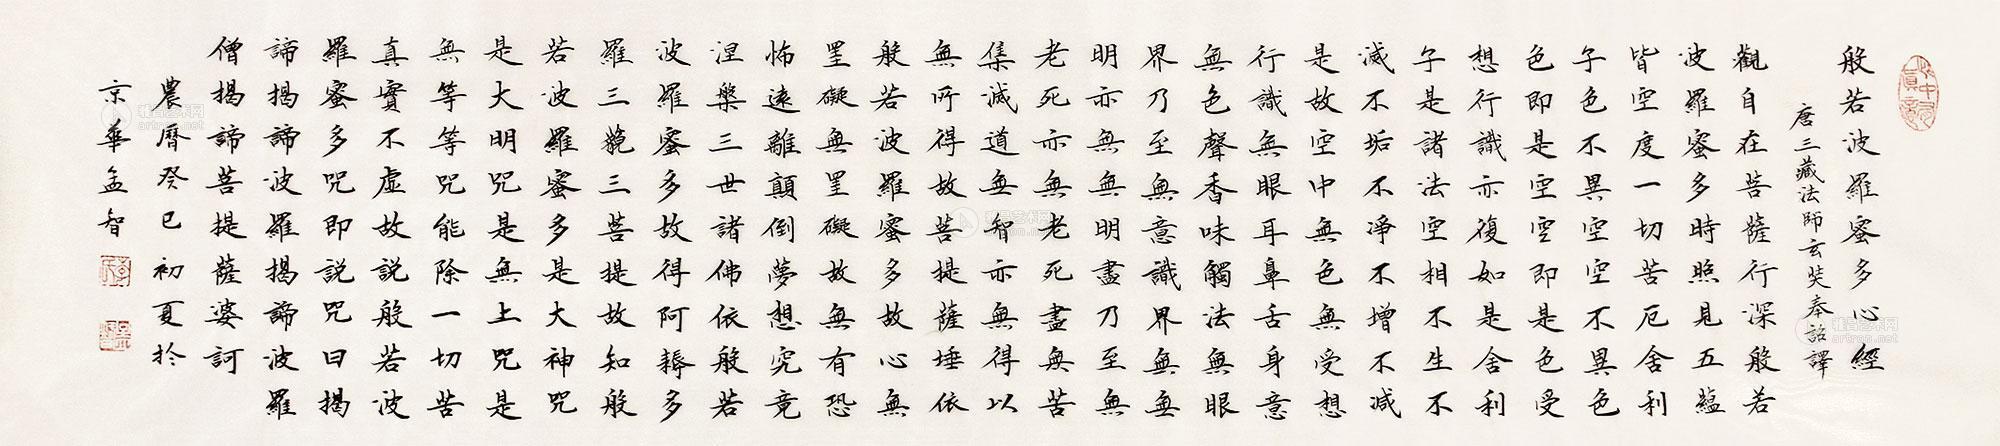 般若波羅蜜多心經
唐三藏法師玄奘奉詔譯
觀自在菩薩行深般若
波羅蜜多時照見五蘊
皆空度一切苦厄舍利
子色不異空空不異色
色即是空空即是色受
想行識亦復如是舍利
子是諸法空相不生不
滅不垢不淨不增不減
是故空中無色無受想
行識無眼耳鼻舌身意
無色聲香味觸法無眼
界乃至無意識界無無
明亦無無明盡乃至無
老死亦無老死盡無苦
集滅道無智亦無得以
無所得故菩提薩埵依
般若波羅蜜多故心無
罣礙無罣礙故無有恐
怖遠離顛倒夢想究竟
涅槃三世諸佛依般若
波羅蜜多故得阿耨多
羅三藐三菩提故知般
若波羅蜜多是大神咒
是大明咒是無上咒是
無等等咒能除一切苦
真實不虛故說般若波
羅蜜多咒即說咒曰揭
諦揭諦波羅揭諦波羅
僧揭諦菩提薩婆訶
農曆癸巳初夏於
京華孟智
雅昌艺术网
artron.net